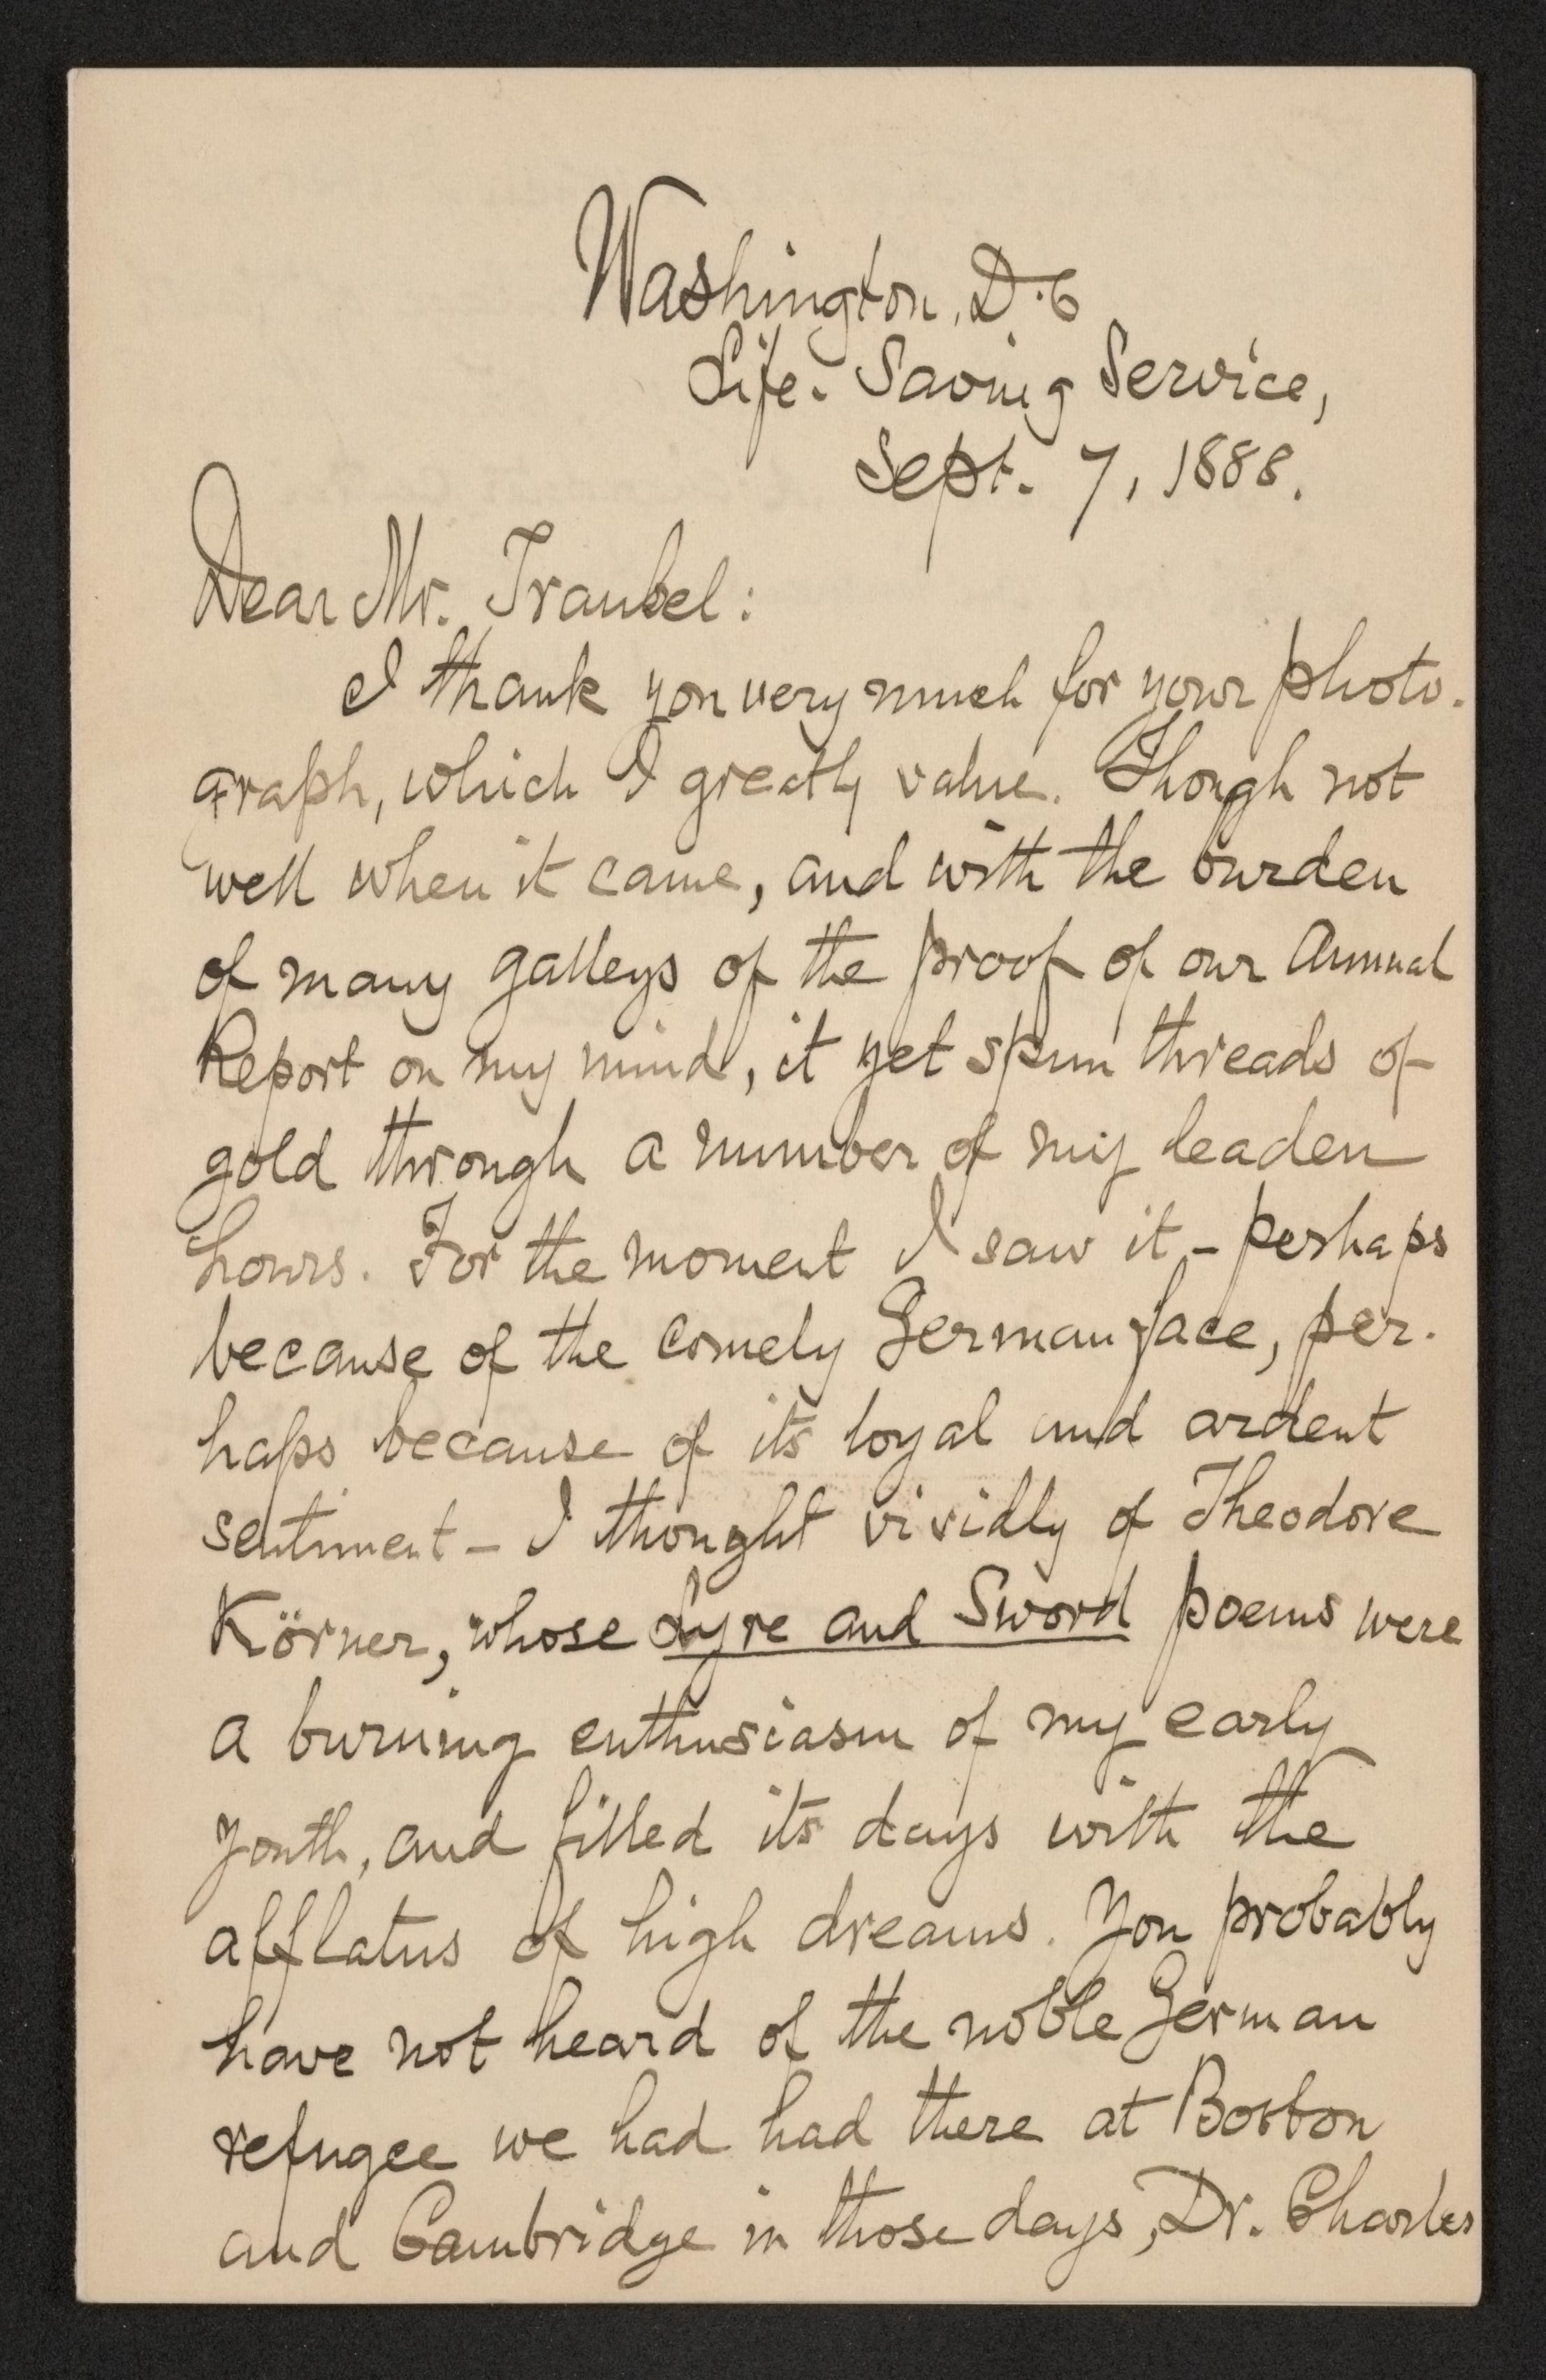 Washington, D.C
Life-Saving Service,
Sept. 7, 1888.
Dear Mr. Traubel:
I thank you very much for your photo-
graph, which I greatly value. Though not
well when it came, and with the burden
of many galleys of the proof of our Annual
Report on my mind, it yet spun threads of
gold through a number of my leaden
hours. For the moment I saw it – perhaps
because of the comely German face, per-
haps because of its loyal and ardent
sentiment – I thought vividly of Theodore
Körner, whose Lyre and Sword poems were
a burning enthusiasm of my early
youth, and filled its days with the
afflatus of high dreams. You probably
have not heard of the noble German
refugee we had had there at Boston
and Cambridge in those days, Dr. Charles